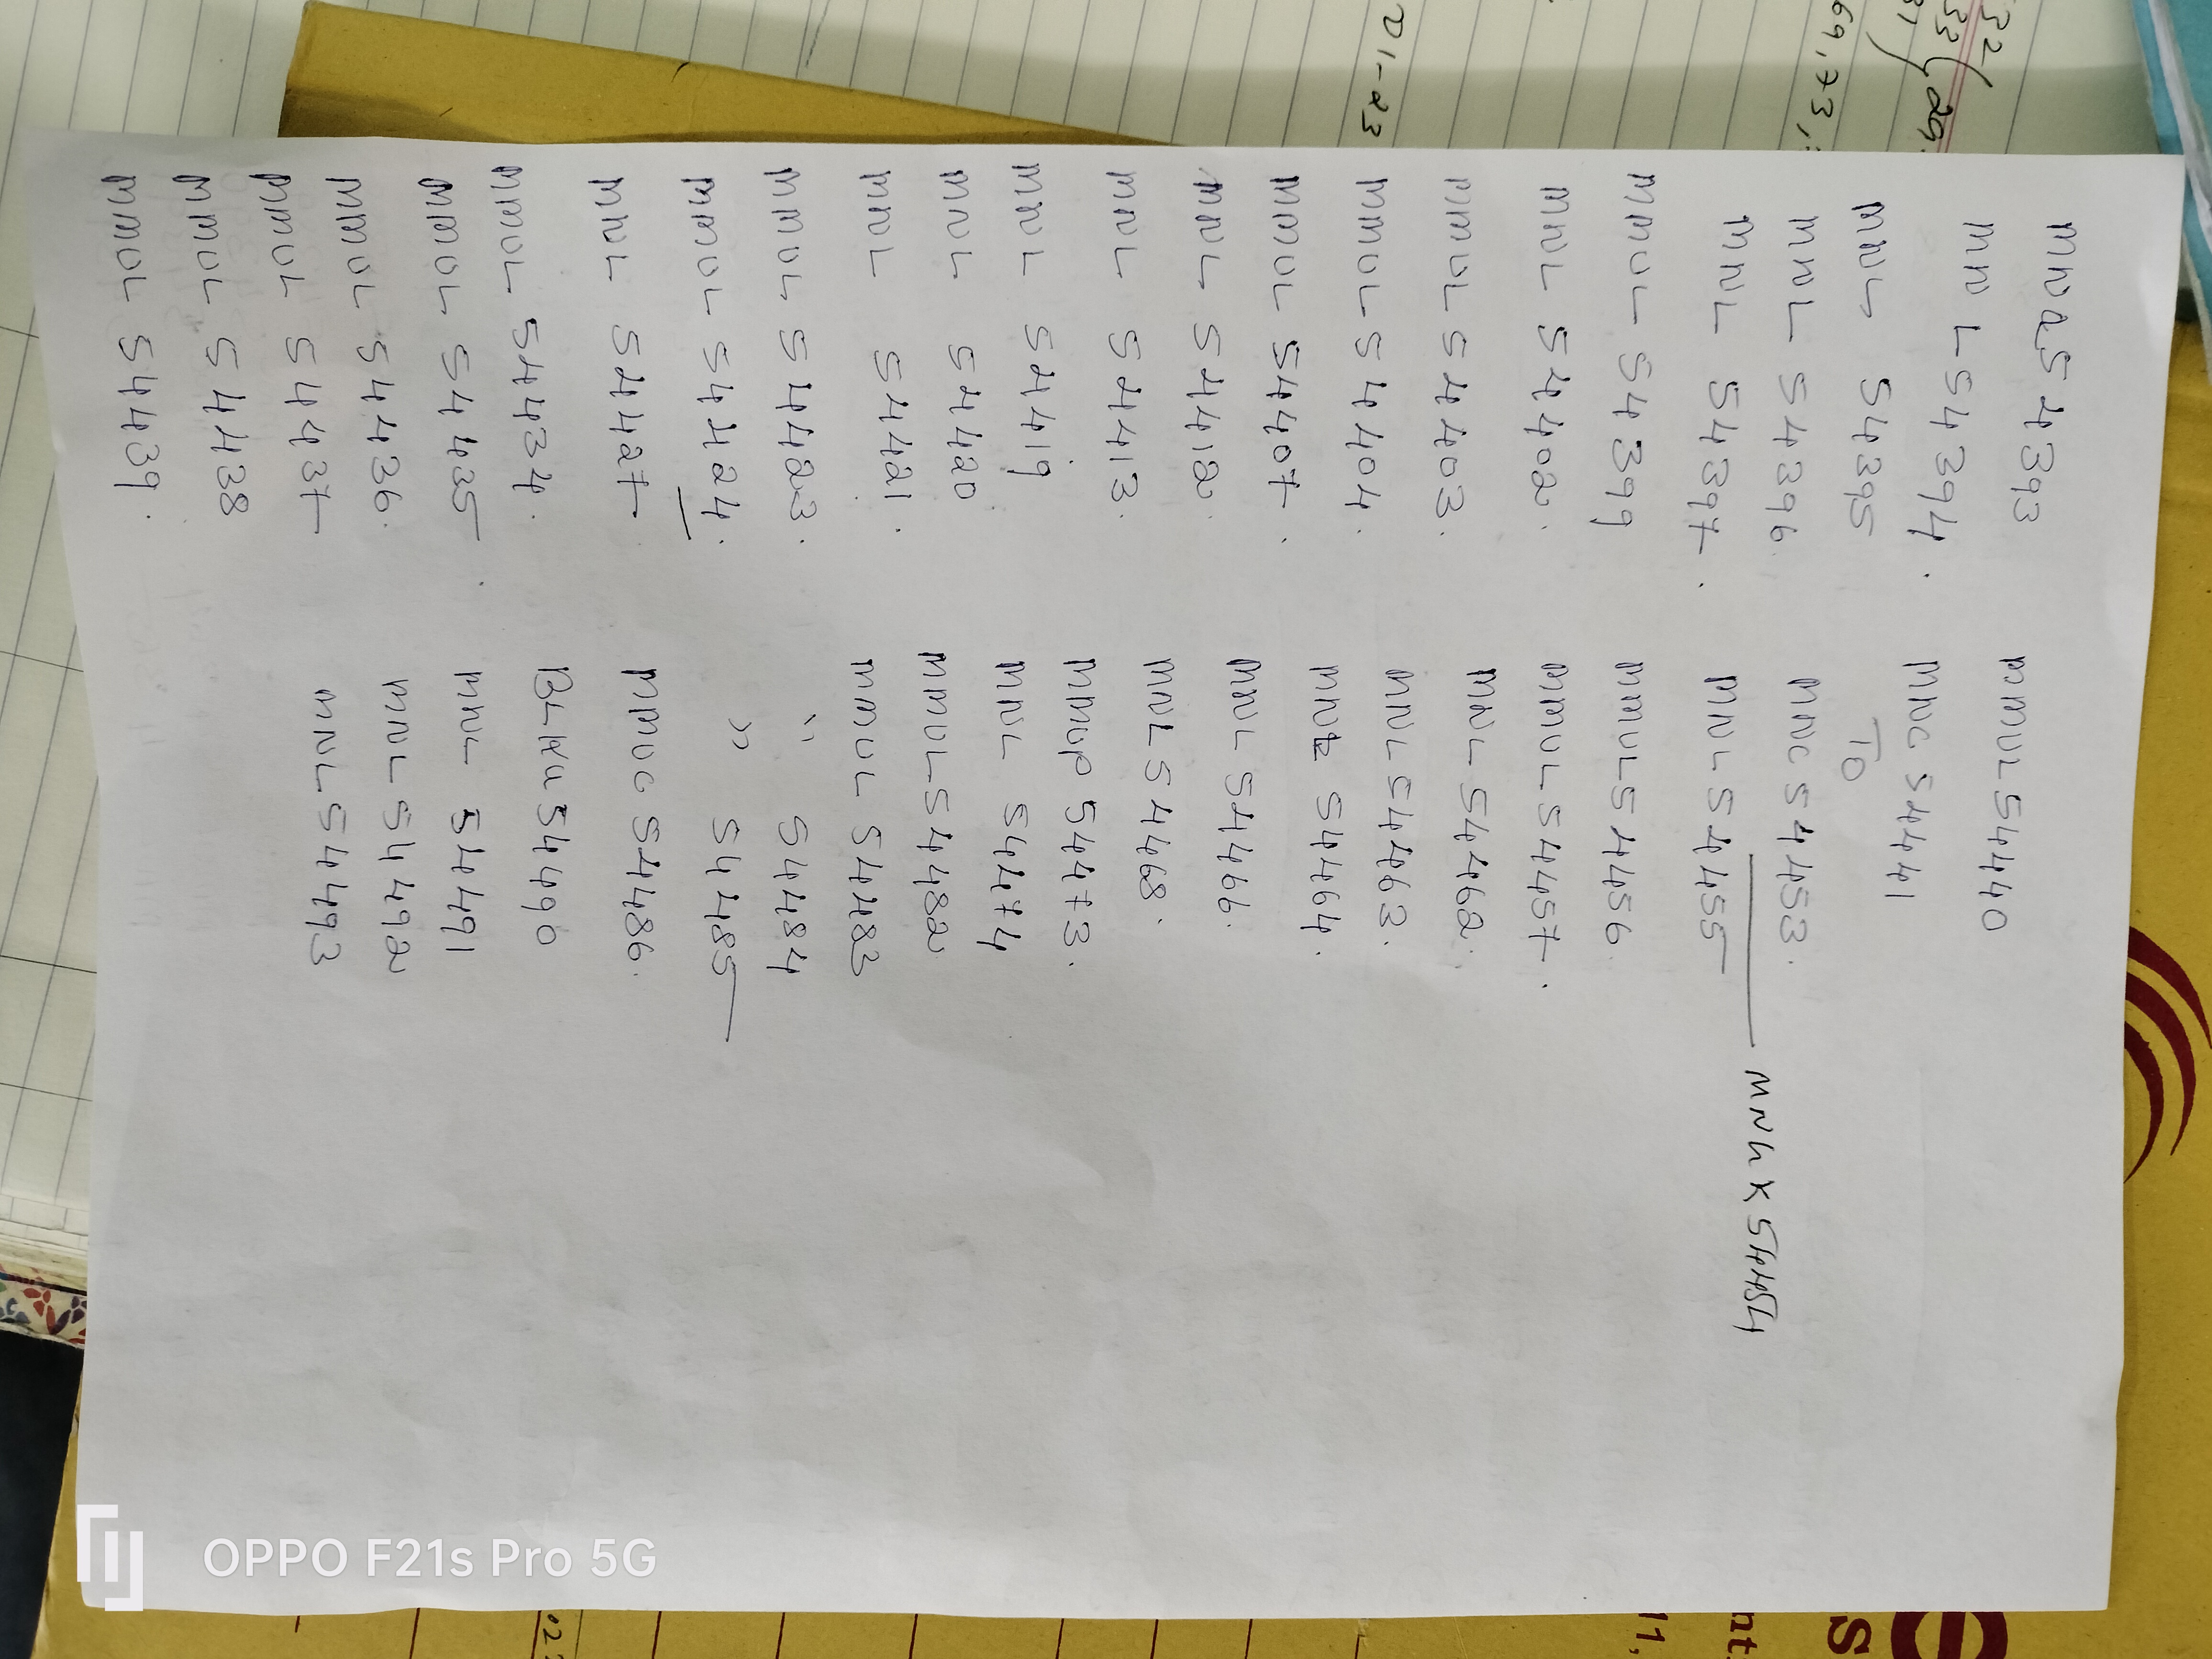 MNL54393
MNL54394.
MNL 54395
MNL 54396.
MNL 54397.
MMUL 54399
MNL 54402.
MMUL 54403.
MMUL 54404.
MMUL 54407.
MNL 54412.
MNL 54413.
MNL 54419
MNL 54420
MNL 54421.
MMUL 54423.
MMUL 54424.
MNL 54427
MMUL 54434.
MMUL 54435
MMUL 54436.
MMUL 54437
MMUL 54438
MMUL 54439.
MMUL54440
MNC 54441
TO
MNC 54453.
MNL 54455
MNLK 54454
MMUL54456
MMUL54457.
MNL 54462.
MNL54463.
MNL 54464.
MNL 54466.
MNL54468.
MMUP54473.
MNL 54474
MMUL54482
MMUL 54483
" 54484
" 54485
MMUC 54486.
BLKU54490
MNL 54491
MNL 54492
MNL54493
01-23
69,73,
32
33
29
OPPO F21s Pro 5G
11,
nt.
es